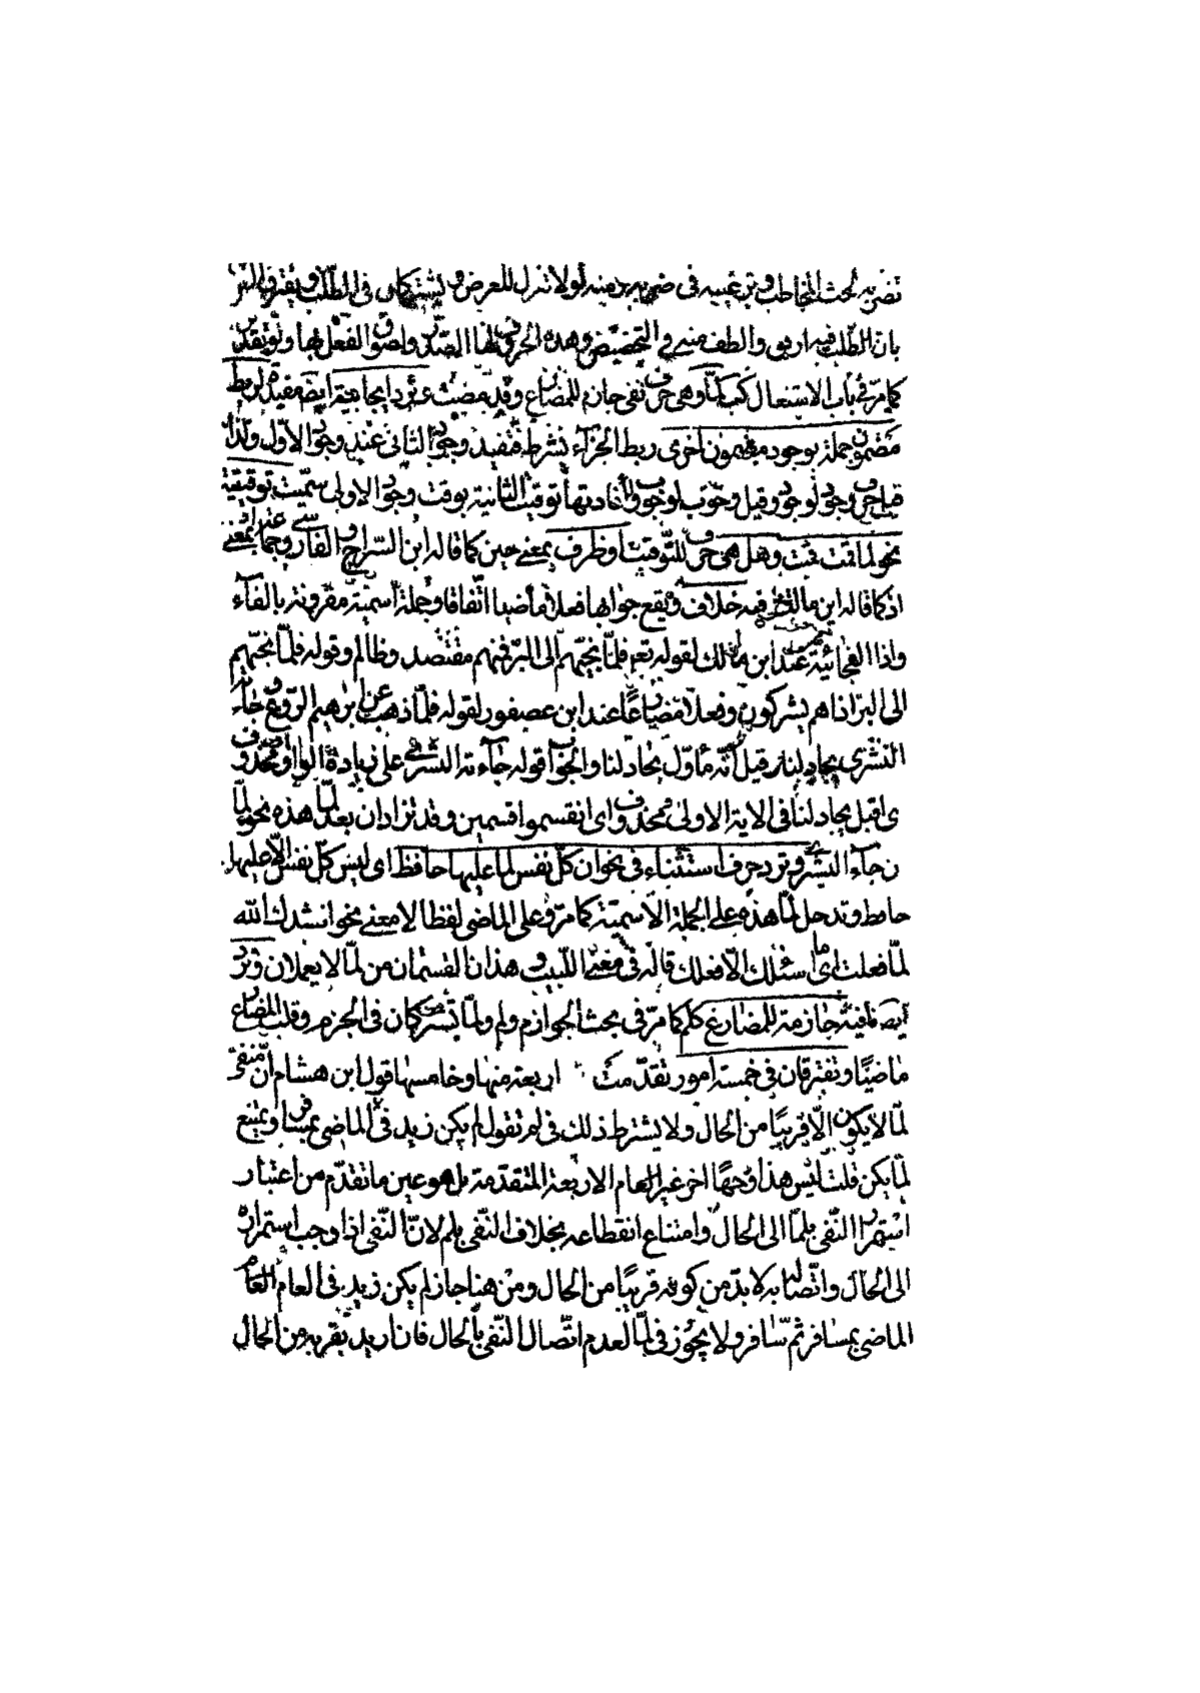 بان الطلب فيه ارفق والطف منه في التحضيض وهذه الحروف لها الصدر واضمر الفعل بها
كما مر في باب الاشتغال لما وهي حرف نفى جازم للمضارع وقد مضت وترد ايجابية ايض مفيدة لربط
مضمون جملة بوجود مضمون اخرى ربط الجزاء بشرطه تفيد وجود الثانى عند وجود الاول ولذا
قيل حرف وجود لوجود وقيل وجوب لوجوب ولافادتها توقيت الثانية بوقت وجود الاولى سميت توقيتية
نحو لما قمت قمت وهل هي حرف للتوقيت او ظرف بمعنى حين كما قاله ابن السراج والفارسى وجماعة بمعنى
اذ كما قاله ابن مالك فيه خلاف ويقع جوابها فعلا ماضيا اتفاقا وجملة اسمية مقرونة بالفآء
واذا الفجائية عند ابن مالك لقوله تع فلما نجيهم الى البر فمنهم مقتصد وظالم وقوله فلما نجيهم
الى البر اذا هم يشركون وفعلا مضارعا عند ابن عصفور لقوله فلما ذهب عن ابرهيم الروع وجاءته
البشرى يجادلنا قيل انه مأول بجادلنا والجواب قوله جآءته البشرى على زيادة الواو او محذوف
ى اقبل يجادلنا في الاية الاولى محذوف اى انقسموا قسمين وقد تزاد ان بعد لما هذه نحو لما
ن جآء البشير وترد حرف استثناء في نحو ان كل نفس لما عليها حافظ اى ليس كل نفس الا عليها
حافظ وتدخل لما هذه على الجملة الاسمية كما مر وعلى الماضى لفظا لا معنى نحو انشدك الله
لما فعلت اى ما اسئلك الا فعلك قاله في مغنى اللبيب وهذان القسمان من لما لا يعملان وترد
ايض نافية جازمة للمضارع كلم كما مر في بحث الجوازم ولم ولما تشتركان في الجزم وقلب المضارع
ماضيا وتفترقان في خمسة امور تقدمت اربعة منها وخامسها قول ابن هشام ان منفى
لما لا يكون الا قريبا من الحال ولا يشترط ذلك في لم تقول لم يكن زيد في الماضى مسافرا ويمتنع
لما يكن قلت ليس هذا وجها اخر غير الاربعة المتقدمة بل هو عين ما تقدم من اعتبار
استمرار النفى بلما الى الحال وامتناع انقطاعه بخلاف النفى بلم لان النفى اذا وجب استمراره
الى الحال واتصاله به لابد من كونه قريبا من الحال ومن هنا جاز لم يكن زيد في العام
الماضى بمسافر ثم سافر ولا يجوز في لما لعدم اتصال النفى بالحال فان اريد بقربه من الحال